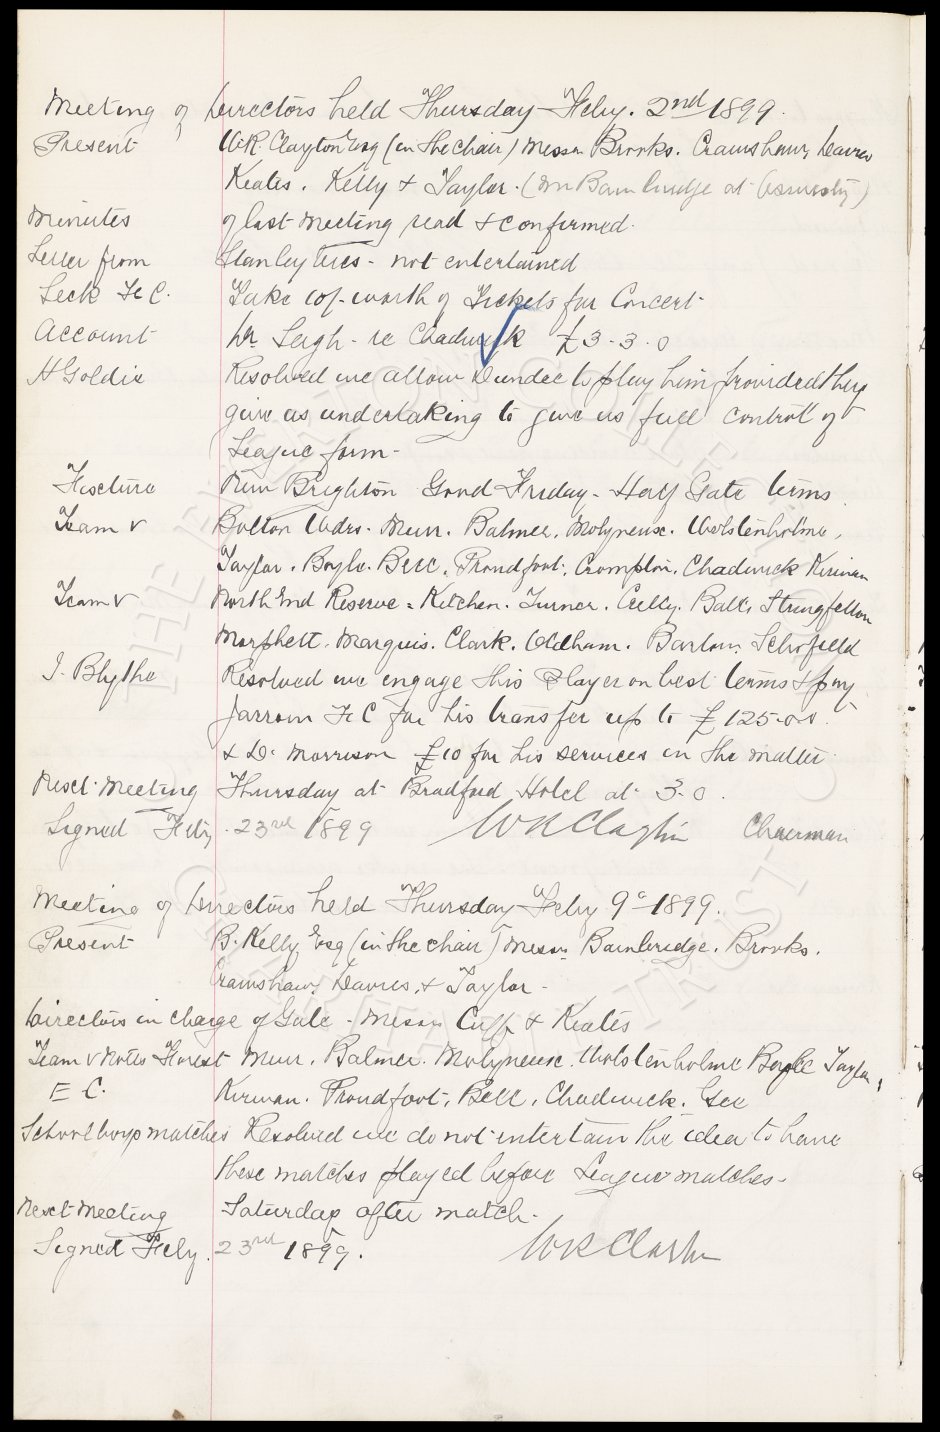 Meeting of Directors held Thursday Feby. 2nd 1899.
Present W.R. Clayton Esq (in the chair) Messrs Brooks. Crawshaw, Davies
Keates. Kelly & Taylor. (Mr Bainbridge at
Minutes of last meeting read & confirmed.
Letter from Stanley - not entertained
Leek F C. Take 10/- worth of Tickets for Concert
Account Dr Leigh - re Chadwick £3-3-0
H Goldie Resolved we allow Dundee to play him provided they
give us undertaking to give us full control of
League form -
Fixture New Brighton Good Friday - Half Gate terms.
Team v Bolton Wdrs. Muir. Balmer. Molyneux. Wolstenholme,
Taylor. Boyle. Bell. Proudfoot. Crompton. Chadwick Kirwan
Team v North End Reserve = Kitchen. Turner. Crelly. Balls Stringfellow
Morphett. Marquis. Clark. Oldham. Barlow. Schofield
J. Blythe Resolved we engage this Player on best terms & pay
Jarrow F C for his transfer up to £125-0-0.
& D. Morrison £10 for his services in the matter
Next Meeting Thursday at Bradford Hotel at 3.0.
Signed Feby. 23rd 1899 W R Clayton Chairman
Meeting of Directors held Thursday Feby 9th 1899.
Present B. Kelly Esq (in the chair) Messrs Bainbridge. Brooks.
Crawshaw, Davies, & Taylor -
Directors in charge of Gate - Messrs Cuff & Keates
Team v Notts Forest Muir. Balmer. Molyneux. Wolstenholme Boyle Taylor,
E C. Kirwan. Proudfoot, Bell, Chadwick. Gee
Schoolboys matches Resolved we do not entertain the idea to have
these matches played before League matches -
Next Meeting Saturday after match -
Signed Feby. 23rd 1899. W R Clayton